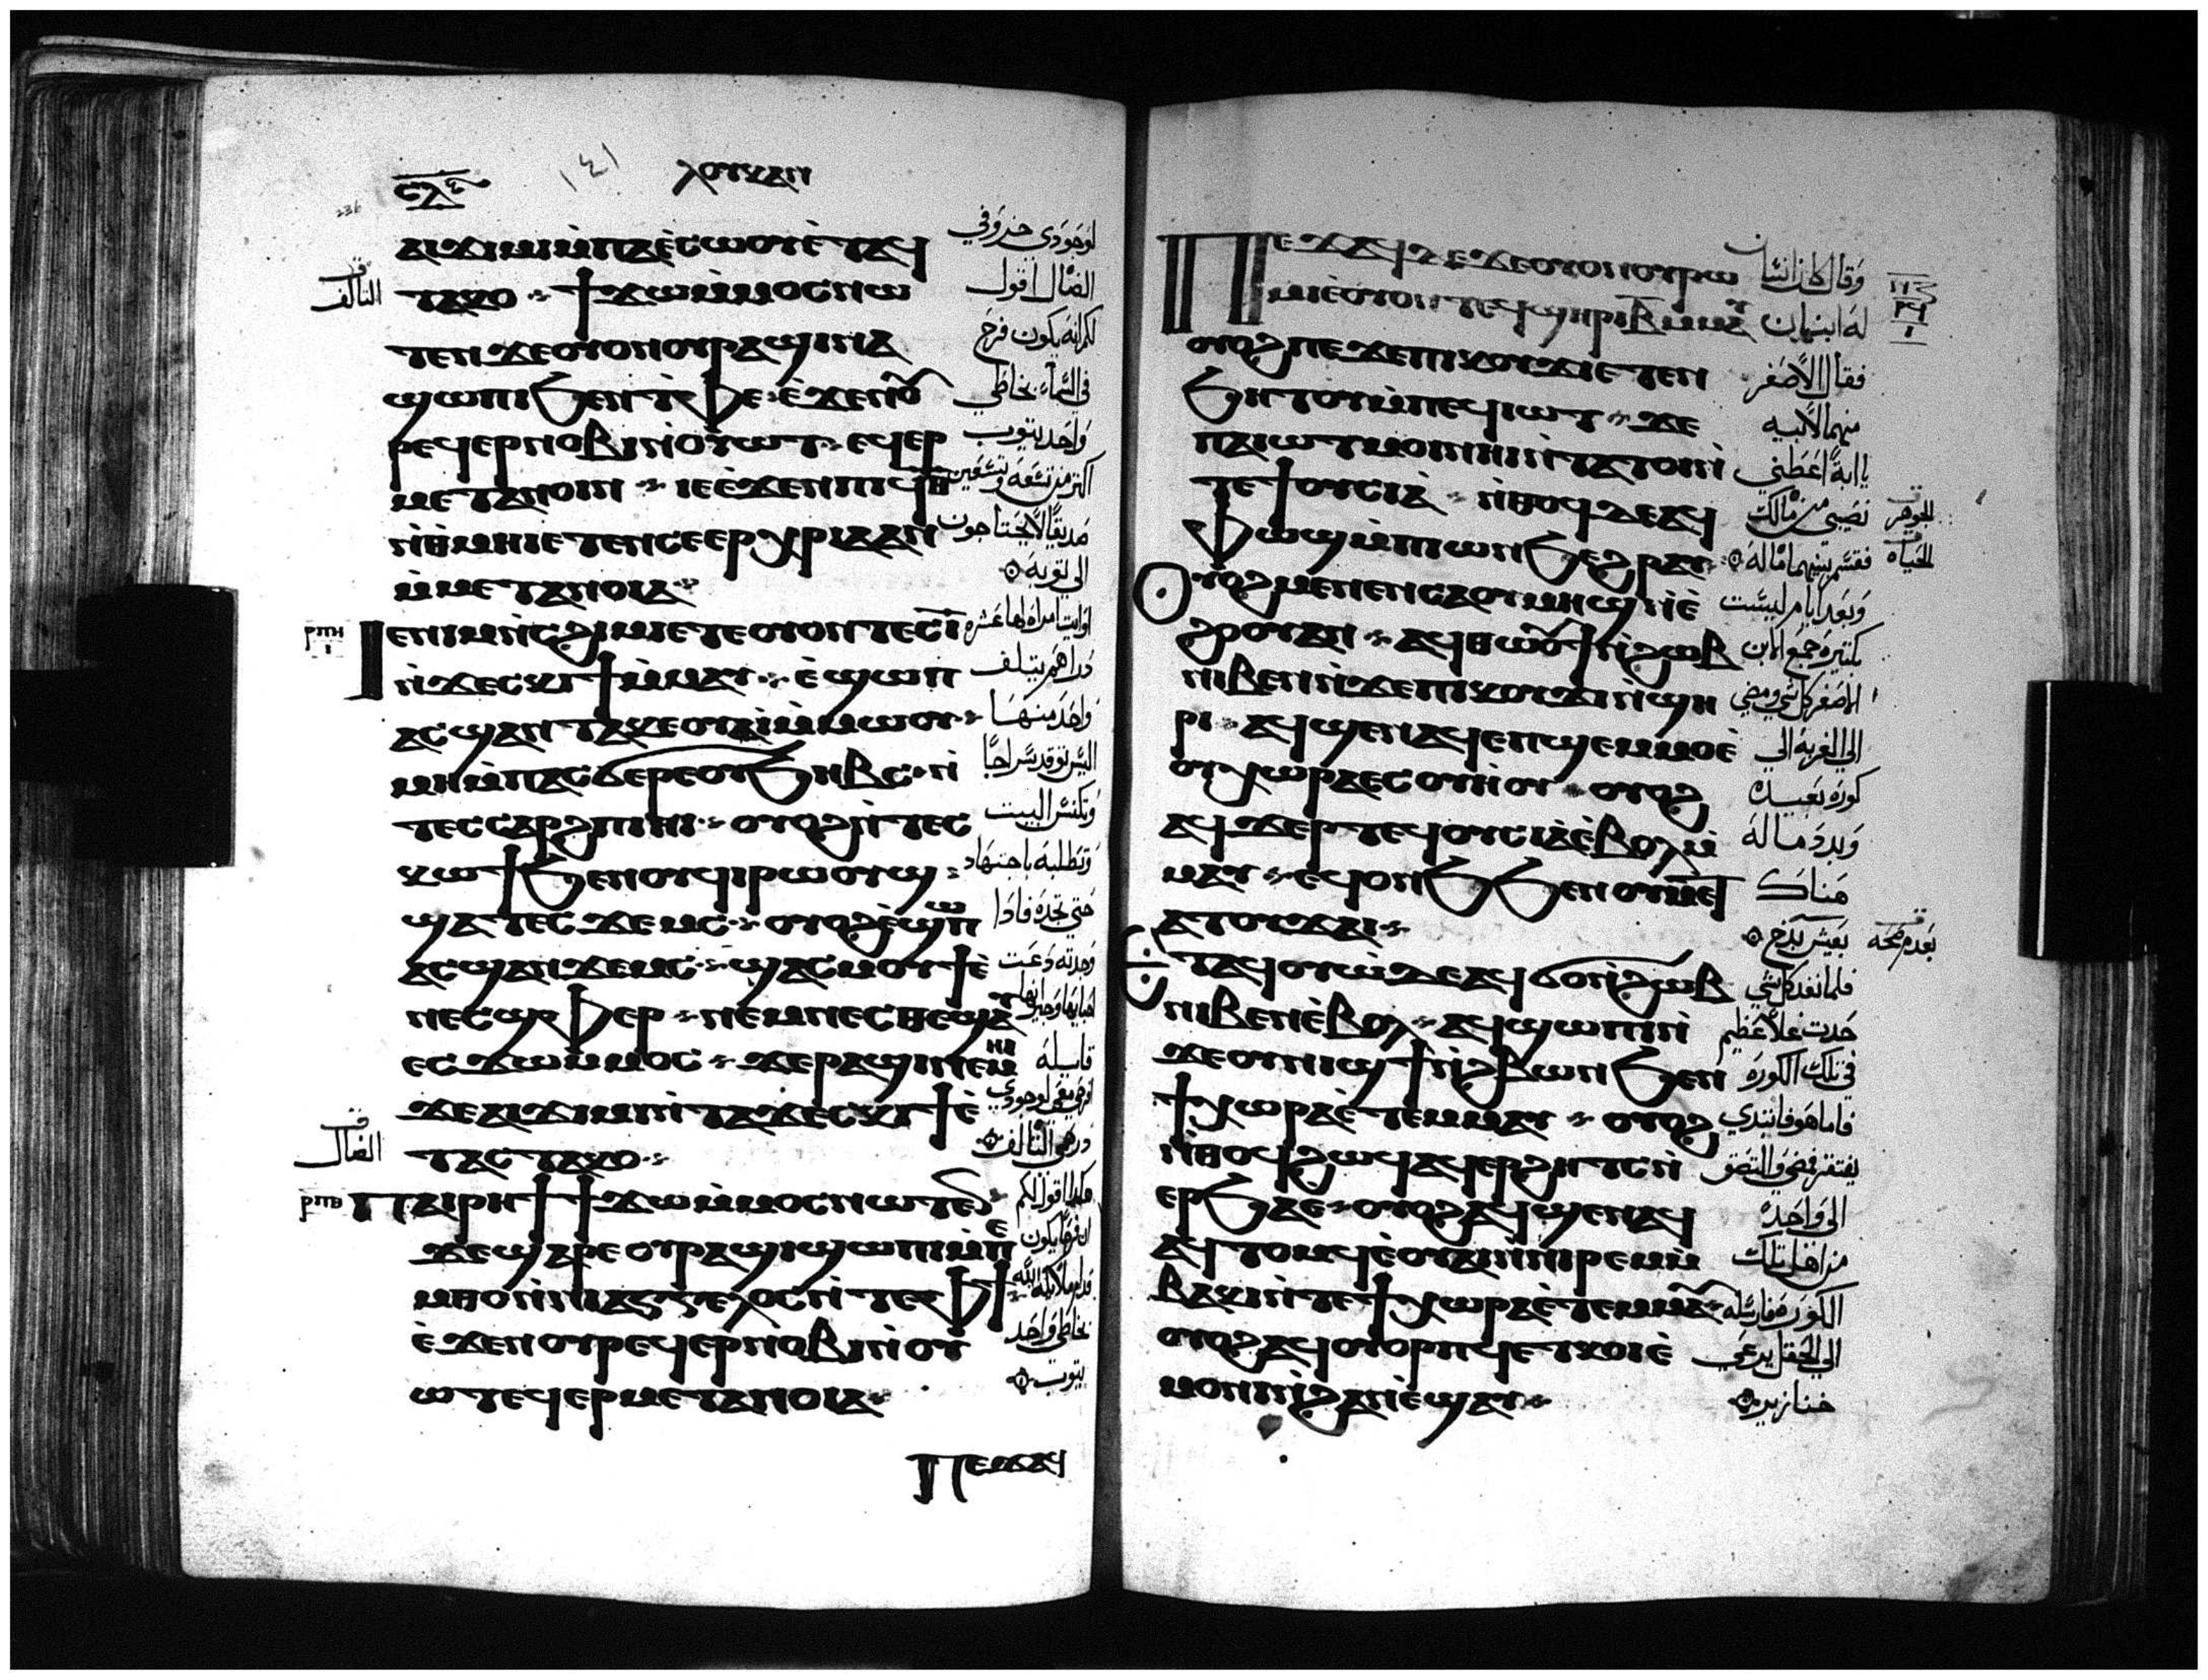 ⲥⲗⲋ ١٤١ ⲗⲟⲩⲕⲁⲛ
236
ⲁⲓϫⲓⲙⲓⲙ̀ⲡⲁⲉ̀ⲥⲱⲟⲩⲉ̀ⲧⲁϥ لوجودي خروفي
ⲧⲁⲕⲟ ϯϫⲱⲙ̀ⲙⲟⲥⲛⲱ الضال اقول
التالف
ⲧⲉⲛ ϫⲉⲟⲩⲟⲛⲟⲩⲣⲁϣⲓⲛⲁ لكم انه يكون فرح
ϣⲱⲡⲓϧⲉⲛⲧⲫⲉ ⲉ̀ϫⲉⲛⲟⲩ في السماء بخاطي
ⲣⲉϥⲉⲣⲛⲟⲃⲓⲛ̀ⲟⲩⲱⲧ ⲉϥⲉⲣ واحد يتوب
ⲙⲉⲧⲁⲛⲟⲓⲛ ⲓⲉⲉ̀ϫⲉⲛⲡⲓϥⲑ اكتر من تسعه وتسعين
ⲛ̀ⲑⲙⲏⲓⲉⲧⲉⲛⲥⲉⲉⲣⲭⲣⲓⲁⲁⲛ صديقا لا يحتاجون
ⲙ̀ⲙⲉⲧⲁⲛⲟⲓⲁ الى توبه
ⲣⲡⲏ ⲓⲉⲛⲓⲙⲛ̀ⲥϩⲓⲙⲓⲉⲧⲉⲟⲩⲟⲛⲧⲉⲥⲓ̅ او ايت امراه لها عشره
ⲛ̀ϫⲉⲥⲕⲓϯⲙ̀ⲙⲁⲩ ⲉ̀ϣⲱⲡ دراهم يتلف
ⲁⲥϣⲁⲛⲧⲁⲕⲉⲟⲩⲁⲓⲙ̀ⲙⲱⲟⲩ واحد منها
ⲙⲏⲙ̀ⲡⲁⲥϭⲉⲣⲉⲟⲩϧⲏⲃⲥ ⲛ̀ اليس توقد سراجا
ⲧⲉⲥⲥⲁⲣϩⲡⲓⲏⲓ ⲟⲩⲟϩⲛ̀ⲧⲉⲥ وتكنس البيت
ⲕⲱϯϧⲉⲛⲟⲩϥⲓⲣⲱⲟⲩϣ وتطلبه باجتهاد
ϣⲁⲧⲉⲥϫⲉⲙⲥ ⲟⲩⲟϩⲉ̀ϣⲱⲡ حتي تجده فاذا
ⲁⲥϣⲁⲛϫⲉⲙⲥ ϣⲁⲥⲙⲟⲩϯⲉ̀ وجدته دعت
ⲛⲉⲥϣⲫⲉⲣ ⲛⲉⲙⲛⲉⲥⲑⲉϣⲉ
ⲉⲥϫⲱⲙ̀ⲙⲟⲥ ϫⲉⲣⲁϣⲓⲛⲉⲙⲏⲓ قايله
ϫⲉⲁⲓϫⲓⲙⲓⲛ̀ⲧⲁϫⲉⲥⲕⲓϯⲉ̀ افرحي معي لوجودي
ⲧⲁⲥⲧⲁⲕⲟ درهمي التالف
الضال
ⲣⲡⲑ ⲡⲁⲓⲣⲏϯϯϫⲱⲙ̀ⲙⲟⲥⲛⲱⲧⲉⲛ هكدا اقول لكم
ϫⲉϣⲁⲣⲉⲟⲩⲣⲁϣⲓϣⲱⲡⲓⲙ̀ⲡⲉ ان فرحا يكون
ⲙⲑⲟⲛ̀ⲛⲓⲁⲅⲅⲉⲗⲟⲥⲛ̀ⲧⲉⲫϯ قدام ملايكه الله
ⲉ̀ϫⲉⲛⲟⲩⲣⲉϥⲉⲣⲛⲟⲃⲓⲛ̀ⲟⲩ بخاطي واحد
ⲱⲧⲉϥⲉⲣⲙⲉⲧⲁⲛⲟⲓⲁ يتوب
ⲡⲉϫⲁϥ
ⲡⲉϫⲁϥ ϫⲉⲟⲩⲟⲛⲟⲩⲣⲱ وقال كان انسان
ⲙⲓⲉ̀ⲟⲩⲟⲛⲧⲉϥϣⲏⲣⲓⲃ̅ⲙⲙⲁⲩ له ابنان
ⲟⲩⲟϩⲡⲉϫⲉⲡⲓⲕⲟⲩϫⲓⲉⲧⲉⲛ فقال الاصغر
ϧⲏⲧⲟⲩⲙ̀ⲡⲉϥⲓⲱⲧ ϫⲉ منهما لابيه
ⲡⲁⲓⲱⲧⲙⲟⲓⲛⲏⲓⲛ̀ⲧⲁⲧⲟⲓⲛ̀ يا ابة اعطني
ⲧⲉϯⲟⲩⲥⲓⲁ ⲛ̀ⲑⲟϥⲇⲉⲁϥ نصيبي من مالك
الجوهر
ⲫⲱϣⲙ̀ⲡⲱⲛϧⲉϩⲣⲁⲩ فقسم بينهما ماله
الحياه
ⲟⲩⲟϩⲙⲉⲛⲉⲛⲥⲁⲟⲩⲙⲏϣⲛ̀ⲉ̀ وبعد ايام ليست
ϩⲟⲟⲩⲁⲛ ⲁϥⲑⲱⲟⲩϯⲛ̀ϩⲱⲃ بكتيره جمع الابن
ⲛⲓⲃⲉⲛⲛ̀ϫⲉⲡⲓⲕⲟⲩϫⲓⲛ̀ϣⲏ الاصغر كل شي ومضي
ⲣⲓ ⲁϥϣⲉⲛⲁϥⲉⲡϣⲉⲙⲙⲟⲉ̀ الي الغربه الي
ⲟⲩⲭⲱⲣⲁⲉⲥⲟⲩⲏⲟⲩ ⲟⲩⲟϩ كوره بعيده
ⲁϥϫⲉⲣⲧⲉϥⲟⲩⲥⲓⲁⲉ̀ⲃⲟⲗⲙ̀ وبدد ماله
ⲙⲁⲩ ⲉϥⲟⲛϧϧⲉⲛⲟⲩⲙⲉⲧ هناك
ⲁⲧⲟⲩϫⲁⲓ بعيش بدخ
ⲉⲧⲁϥⲟⲩⲱ̀ⲇⲉⲁϥϭⲟⲛ̀ϩⲱⲃ فلما نفد كل شي
ⲛⲓⲃⲉⲛⲉ̀ⲃⲟⲗ ⲁϥϣⲱⲡⲓⲛ̀ حدث غلا عظيم
ϫⲉⲟⲩⲛⲓϣϯⲛ̀ϩⲃⲱⲛϧⲉⲛ في تلك الكوره
ϯⲭⲱⲣⲁⲉ̀ⲧⲉⲙⲙⲁⲩ ⲟⲩⲟϩ فاما هو فابتدي
ⲛ̀ⲑⲟϥϩⲱϥⲁϥⲉⲣϩⲏⲧⲥⲛ̀ يفتقر فمضي والتصق
ⲉⲣϧⲁⲉ ⲟⲩⲟϩⲁϥϣⲉⲛⲁϥ الى واحده
ⲁϥⲧⲟⲙϥⲉ̀ⲟⲩⲁⲓⲛ̀ⲛⲓⲣⲉⲙⲙ̀ من اهل تلك
ⲃⲁⲕⲓⲛ̀ⲧⲉϯⲭⲱⲣⲁⲉ̀ⲧⲉⲙⲙⲁⲩ الكوره فارسله
ⲟⲩⲟϩⲁϥⲟⲩⲟⲣⲡϥⲉⲧⲕⲟⲓⲉ̀ الي الحقل يرعي
ⲙⲟⲛⲓⲛ̀ϩⲁⲛⲉ̀ϣⲁⲩ خنازير